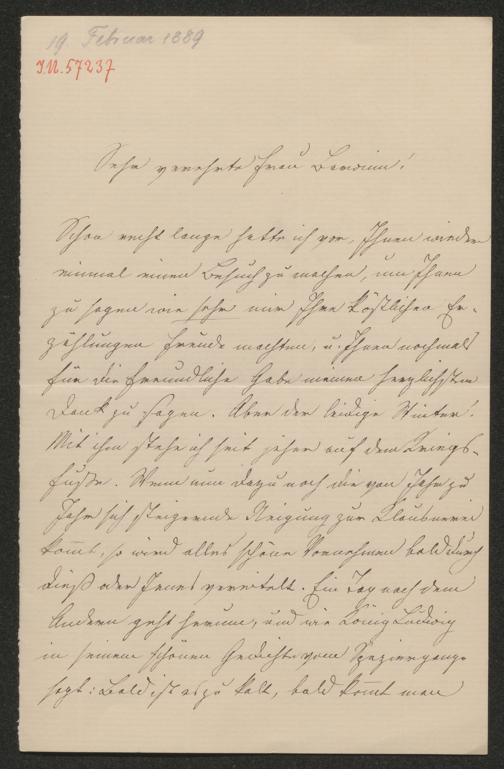 19. Februar 1889
I.N. 57237
Sehr verehrte Frau Baronin!
Schon recht lange hatte ich vor, Ihnen wieder
einmal einen Besuch zu machen, um Ihnen
zu sagen wie sehr mir Ihre köstlichen Er-
zählungen Freude machten, u. Ihnen nochmals
für die freundliche Gabe meinen herzlichsten
Dank zu sagen. Aber der leidige Winter!
Mit ihm stehe ich seit jeher auf dem Kriegs-
fuße. Wenn nun dazu noch die von Jahr zu
Jahr sich steigernde Neigung zur Klausnerei
kommt, so wird alles schöne Vornehmen bald durch
dieß oder Jenes vereitelt. Ein Tag nach dem
Andern geht herum, und wie König Ludwig
in seinem schönen Gedichte vom Spaziergange
sagt: Bald ist es zu kalt, bald kommt man